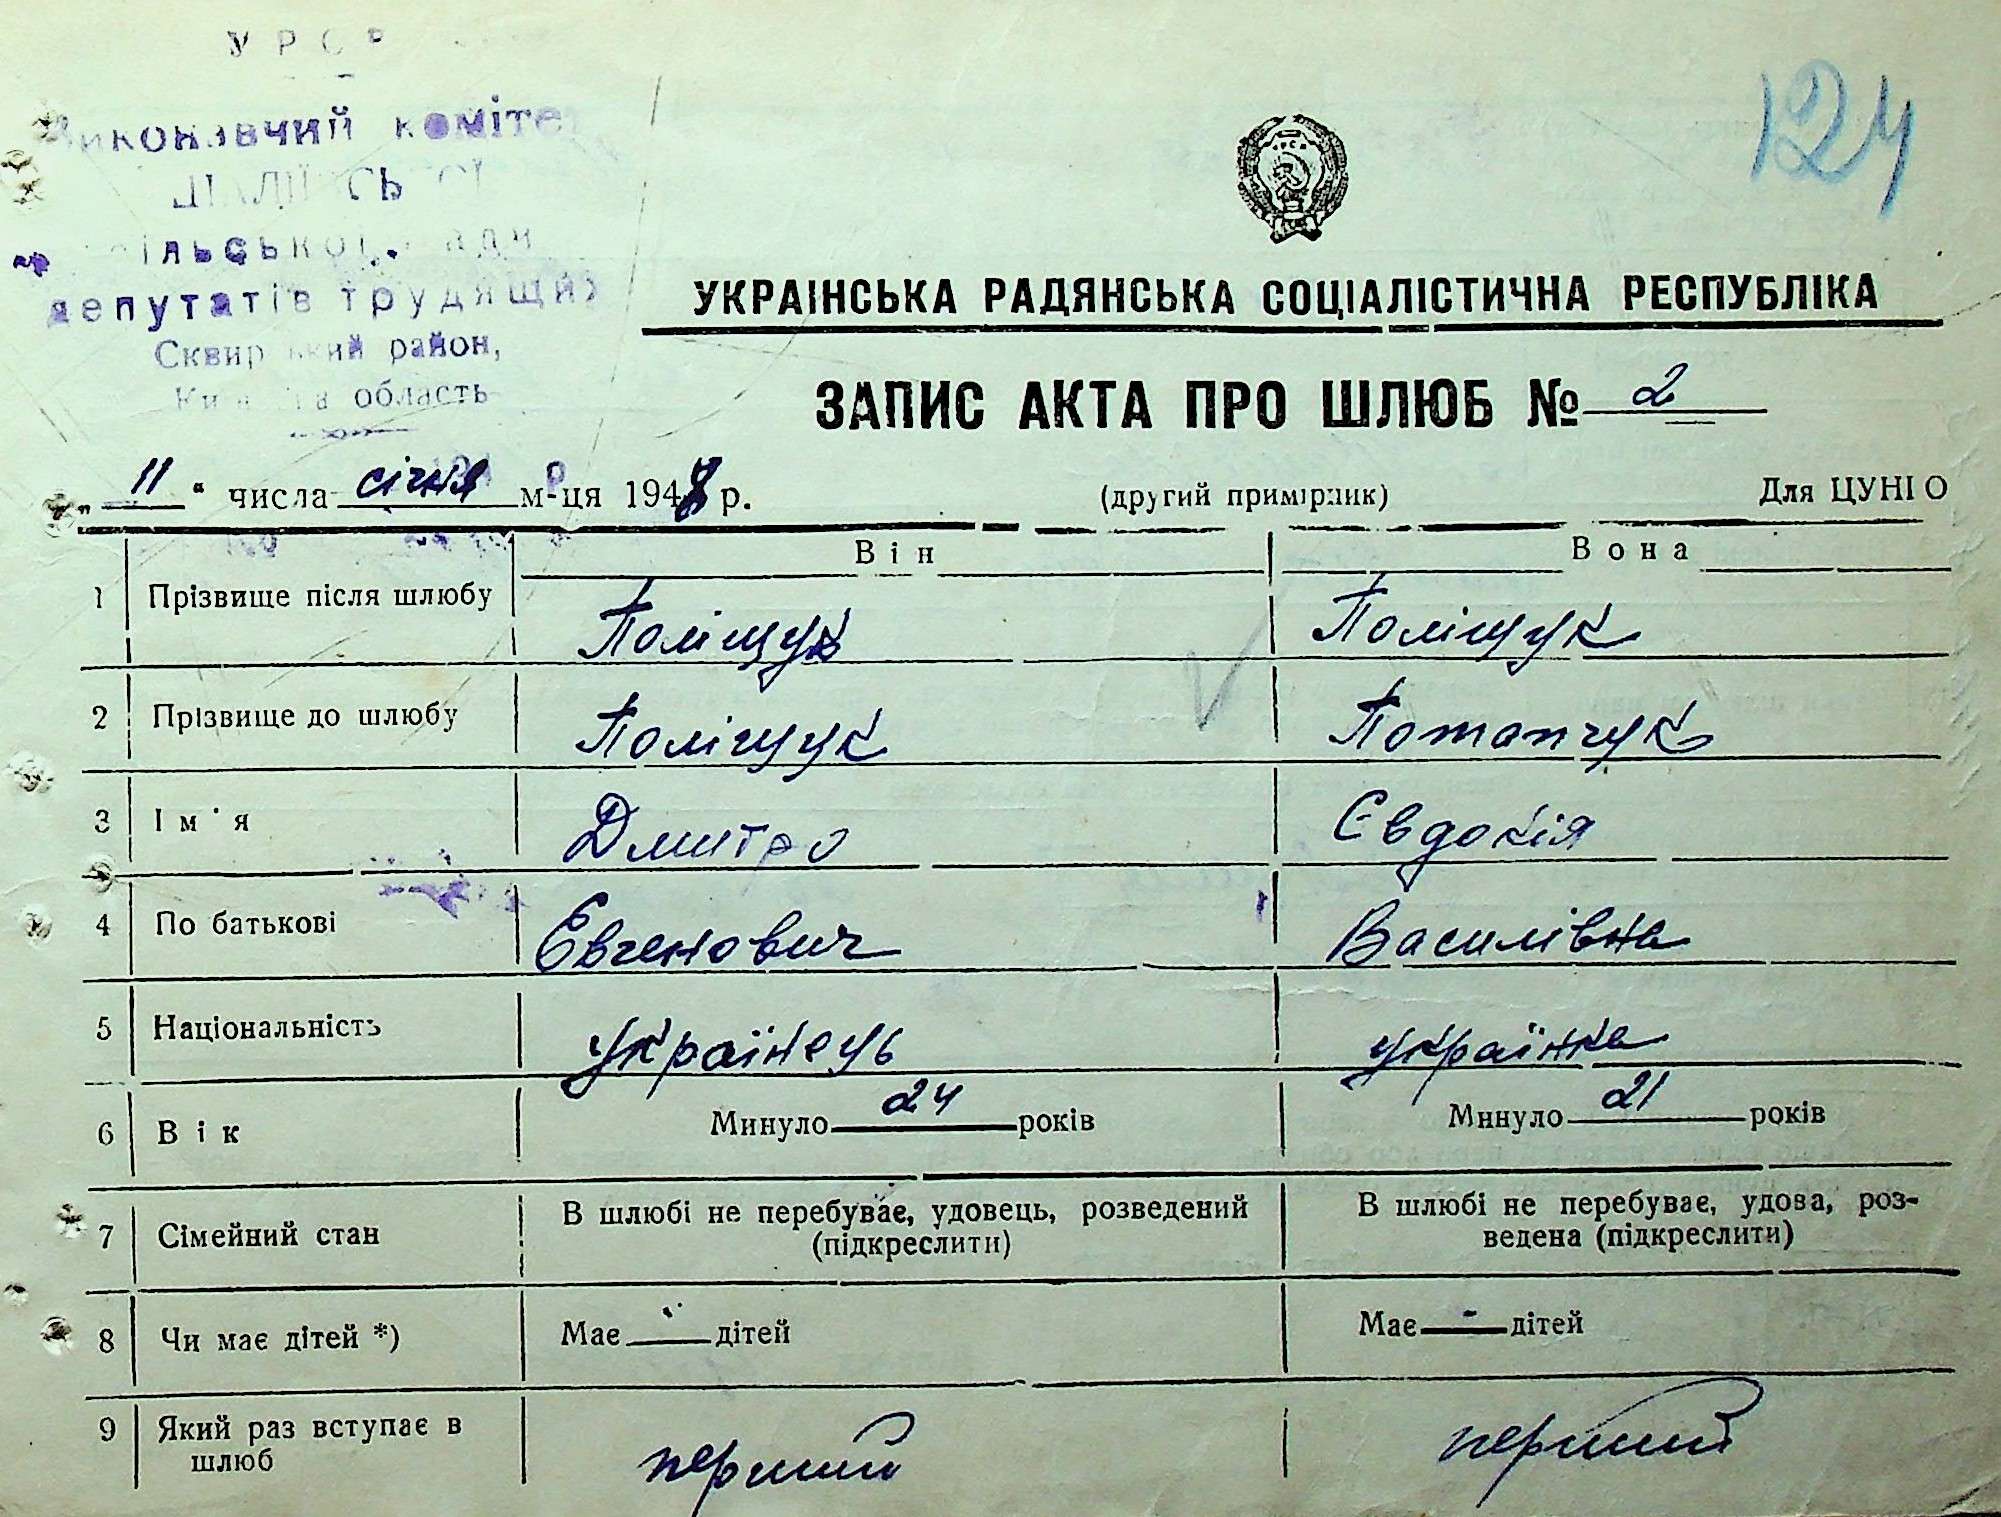 У Р С Р
Виконавчий комітет
сільської ради
депутатів трудящих
Сквирський район,
Київська область
124
УКРАІНСЬКА РАДЯНСЬКА СОЦІАЛІСТИЧНА РЕСПУБЛІКА
ЗАПИС АКТА ПРО ШЛЮБ № 2
„ 11 “ числа січня м-ця 1948 р. (другий примірник) Для ЦУНГО
Він Вона
1 Прізвище після шлюбу Поліщук Поліщук
2 Прізвище до шлюбу Поліщук Потапчук
3 Ім'я Дмитро Євдокія
4 По батькові Євгенович Василівна
5 Національність українець українка
6 Вік Минуло 24 років Минуло 21 років
7 Сімейний стан В шлюбі не перебуває, удовець, розведений В шлюбі не перебуває, удова, роз-
(підкреслити) ведена (підкреслити)
8 Чи має дітей *) Має - дітей Має - дітей
9 Який раз вступає в перший перший
шлюб